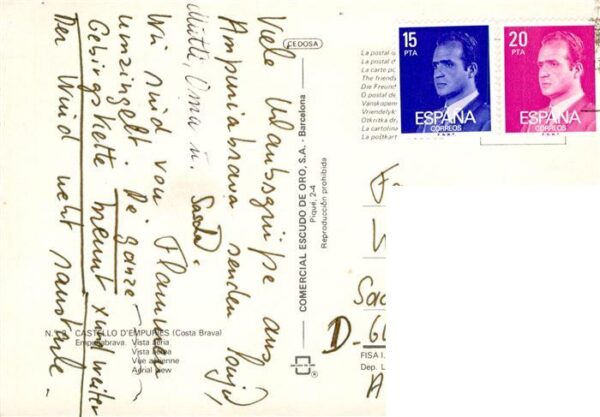 Viele Urlaubsgrüße aus
Ampuriabrava senden Euch,
Mutti, Oma u. Sascha.
Wir sind von Flammen
umzingelt. Die ganze
Gebirgskette brennt und weiter
Der Wind weht saustark.
N.
CASTELLO D'EMPURIES (Costa Brava)
Empuriabrava. Vista aéria
Vista aérea
Vue aérienne
Aerial view
CEDOSA
COMERCIAL ESCUDO DE ORO, S.A. - Barcelona
Piqué, 2-4
Reproducción prohibida
®
La postal
La postal d
La carte
The friend
Die Freund
O postal de
Vänskapen
Vriendelyk
Otkritka dr
La cartolina
15
PTA
ESPAÑA
CORREOS
20
PTA
ESPAÑA
CORREOS
Sac
D-6
FISA I.
Dep. L
A